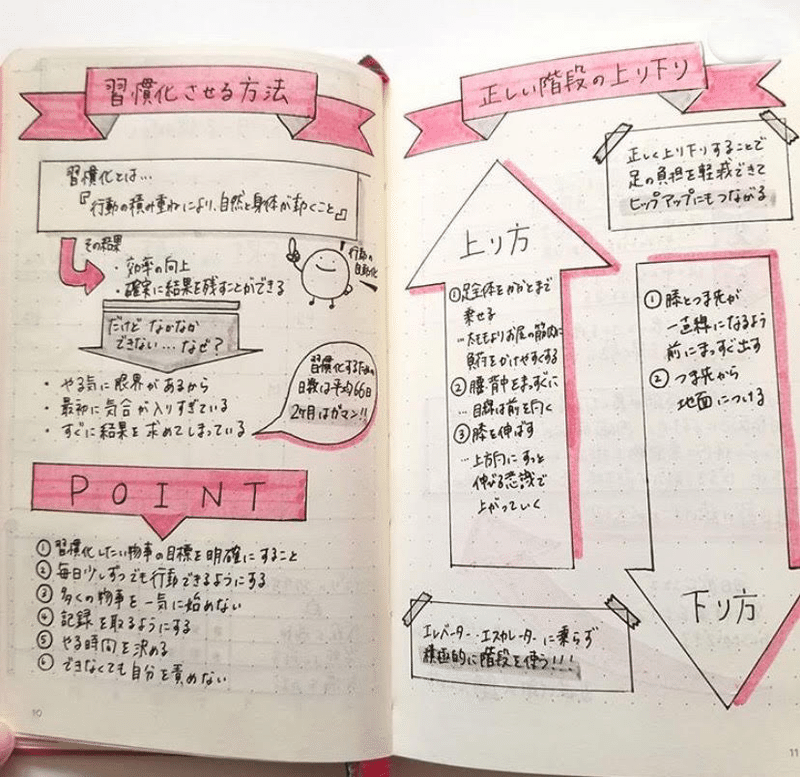 習慣化させる方法
習慣化とは…
『行動の積み重ねにより、自然と身体が動くこと。』
その結果
・効率の向上
・確実に結果を残すことができる
行動の
自動化
だけど なかなか
できない…なぜ？
・やる気に限界があるから
・最初に気合が入りすぎている
・すぐに結果を求めてしまっている
習慣化するための
日数は平均66日
2ヶ月はガマン!!
POINT
①習慣化したい物事の目標を明確にすること
②毎日少しずつでも行動できるようにする
③多くの物事を一気に始めない
④記録を取るようにする
⑤やる時間を決める
⑥できなくても自分を責めない
10
正しい階段の上り下り
正しく上り下りすることで
足の負担を軽減できて
ヒップアップにもつながる
上り方
①足全体をかかとまで
乗せる
…太ももよりお尻の筋肉に
負荷をかけやすくする
②腰背中をまっすぐに
…目線は前を向く
③膝を伸ばす
…上方向にすっと
伸びる意識で
上がっていく
①膝とつま先が
一直線になるよう
前にまっすぐ出す
②つま先から
地面につける
下り方
エレベーター・エスカレーターに乗らず
積極的に階段を使う!!!
11